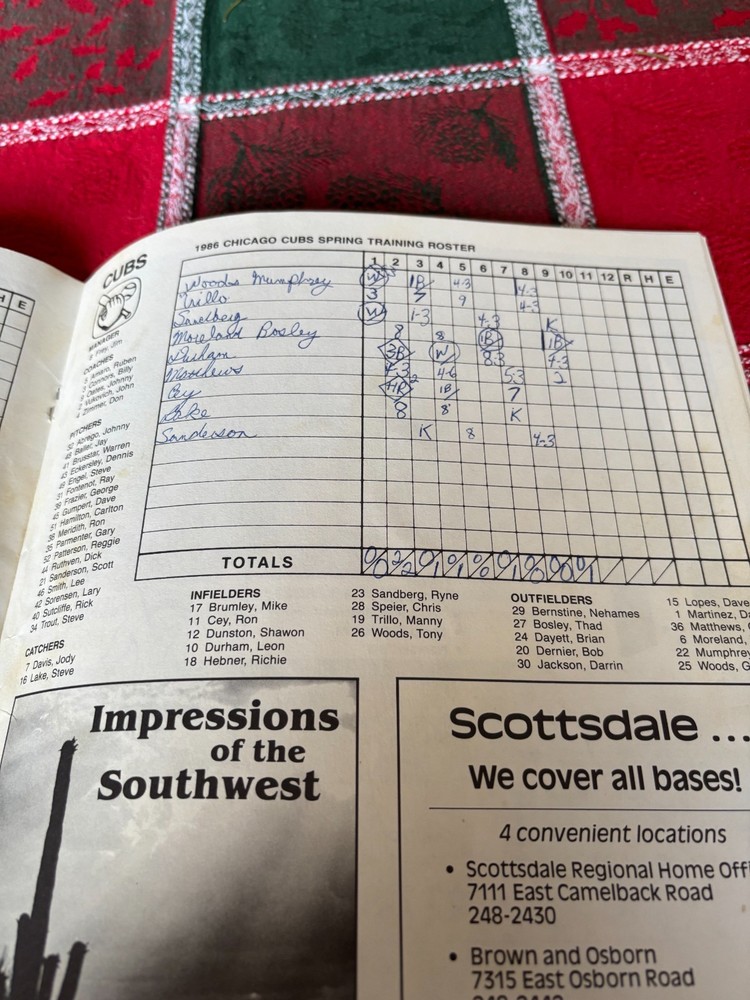 H E
CUBS
1986 CHICAGO CUBS SPRING TRAINING ROSTER
1 2 3 4 5 6 7 8 9 10 11 12 R H E
Woods Mumphrey W 1B 4-3 4-3
Trillo 3 7 9 4-3
Sandberg W 1-3 4-3 K
Moreland Bosley 8 8 1B 1B
Durham 3B W 8-3 4-3
Matthews 4-3 4-6 5-3 2
Cey HR 1B 7
Lake 8 8 K
Sanderson K 8 4-3
TOTALS
MANAGER
Frey, Jim
COACHES
Amaro, Ruben
Connors, Billy
Oates, Johnny
Vukovich, John
Zimmer, Don
PITCHERS
Abrego, Johnny
Baller, Jay
41 Brusstar, Warren
43 Eckersley, Dennis
Engel, Steve
31 Fontenot, Ray
39 Frazier, George
45 Gumpert, Dave
51 Hamilton, Carlton
38 Meridith, Ron
35 Parmenter, Gary
52 Patterson, Reggie
44 Ruthven, Dick
21 Sanderson, Scott
46 Smith, Lee
42 Sorensen, Lary
40 Sutcliffe, Rick
34 Trout, Steve
CATCHERS
7 Davis, Jody
16 Lake, Steve
INFIELDERS
17 Brumley, Mike
11 Cey, Ron
12 Dunston, Shawon
10 Durham, Leon
18 Hebner, Richie
23 Sandberg, Ryne
28 Speier, Chris
19 Trillo, Manny
26 Woods, Tony
OUTFIELDERS
29 Bernstine, Nehames
27 Bosley, Thad
24 Dayett, Brian
20 Dernier, Bob
30 Jackson, Darrin
15 Lopes, Dave
1 Martinez, Da
36 Matthews,
6 Moreland,
22 Mumphrey
25 Woods, G
Impressions
of the
Southwest
Scottsdale ...
We cover all bases!
4 convenient locations
• Scottsdale Regional Home Offi
7111 East Camelback Road
248-2430
• Brown and Osborn
7315 East Osborn Road